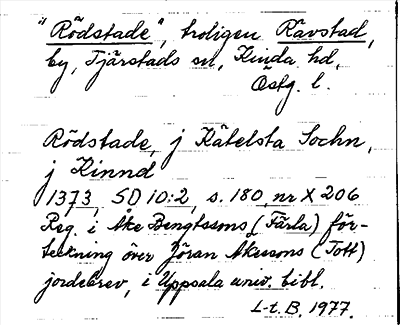 "Rödstade", troligen Råvstad,
by, Tjärstads sn, Kinda hd,
Östg. l.
Rödstade, j Kätelsta Sochn,
j Kinnd
1373, SD 10:2, s. 180 nr X 206
Reg. i Åke Bengtssons (Färla) för-
teckning över Jöran Åkessons (Tott)
jordebrev, i Uppsala univ. bibl.
L-t. B. 1977.